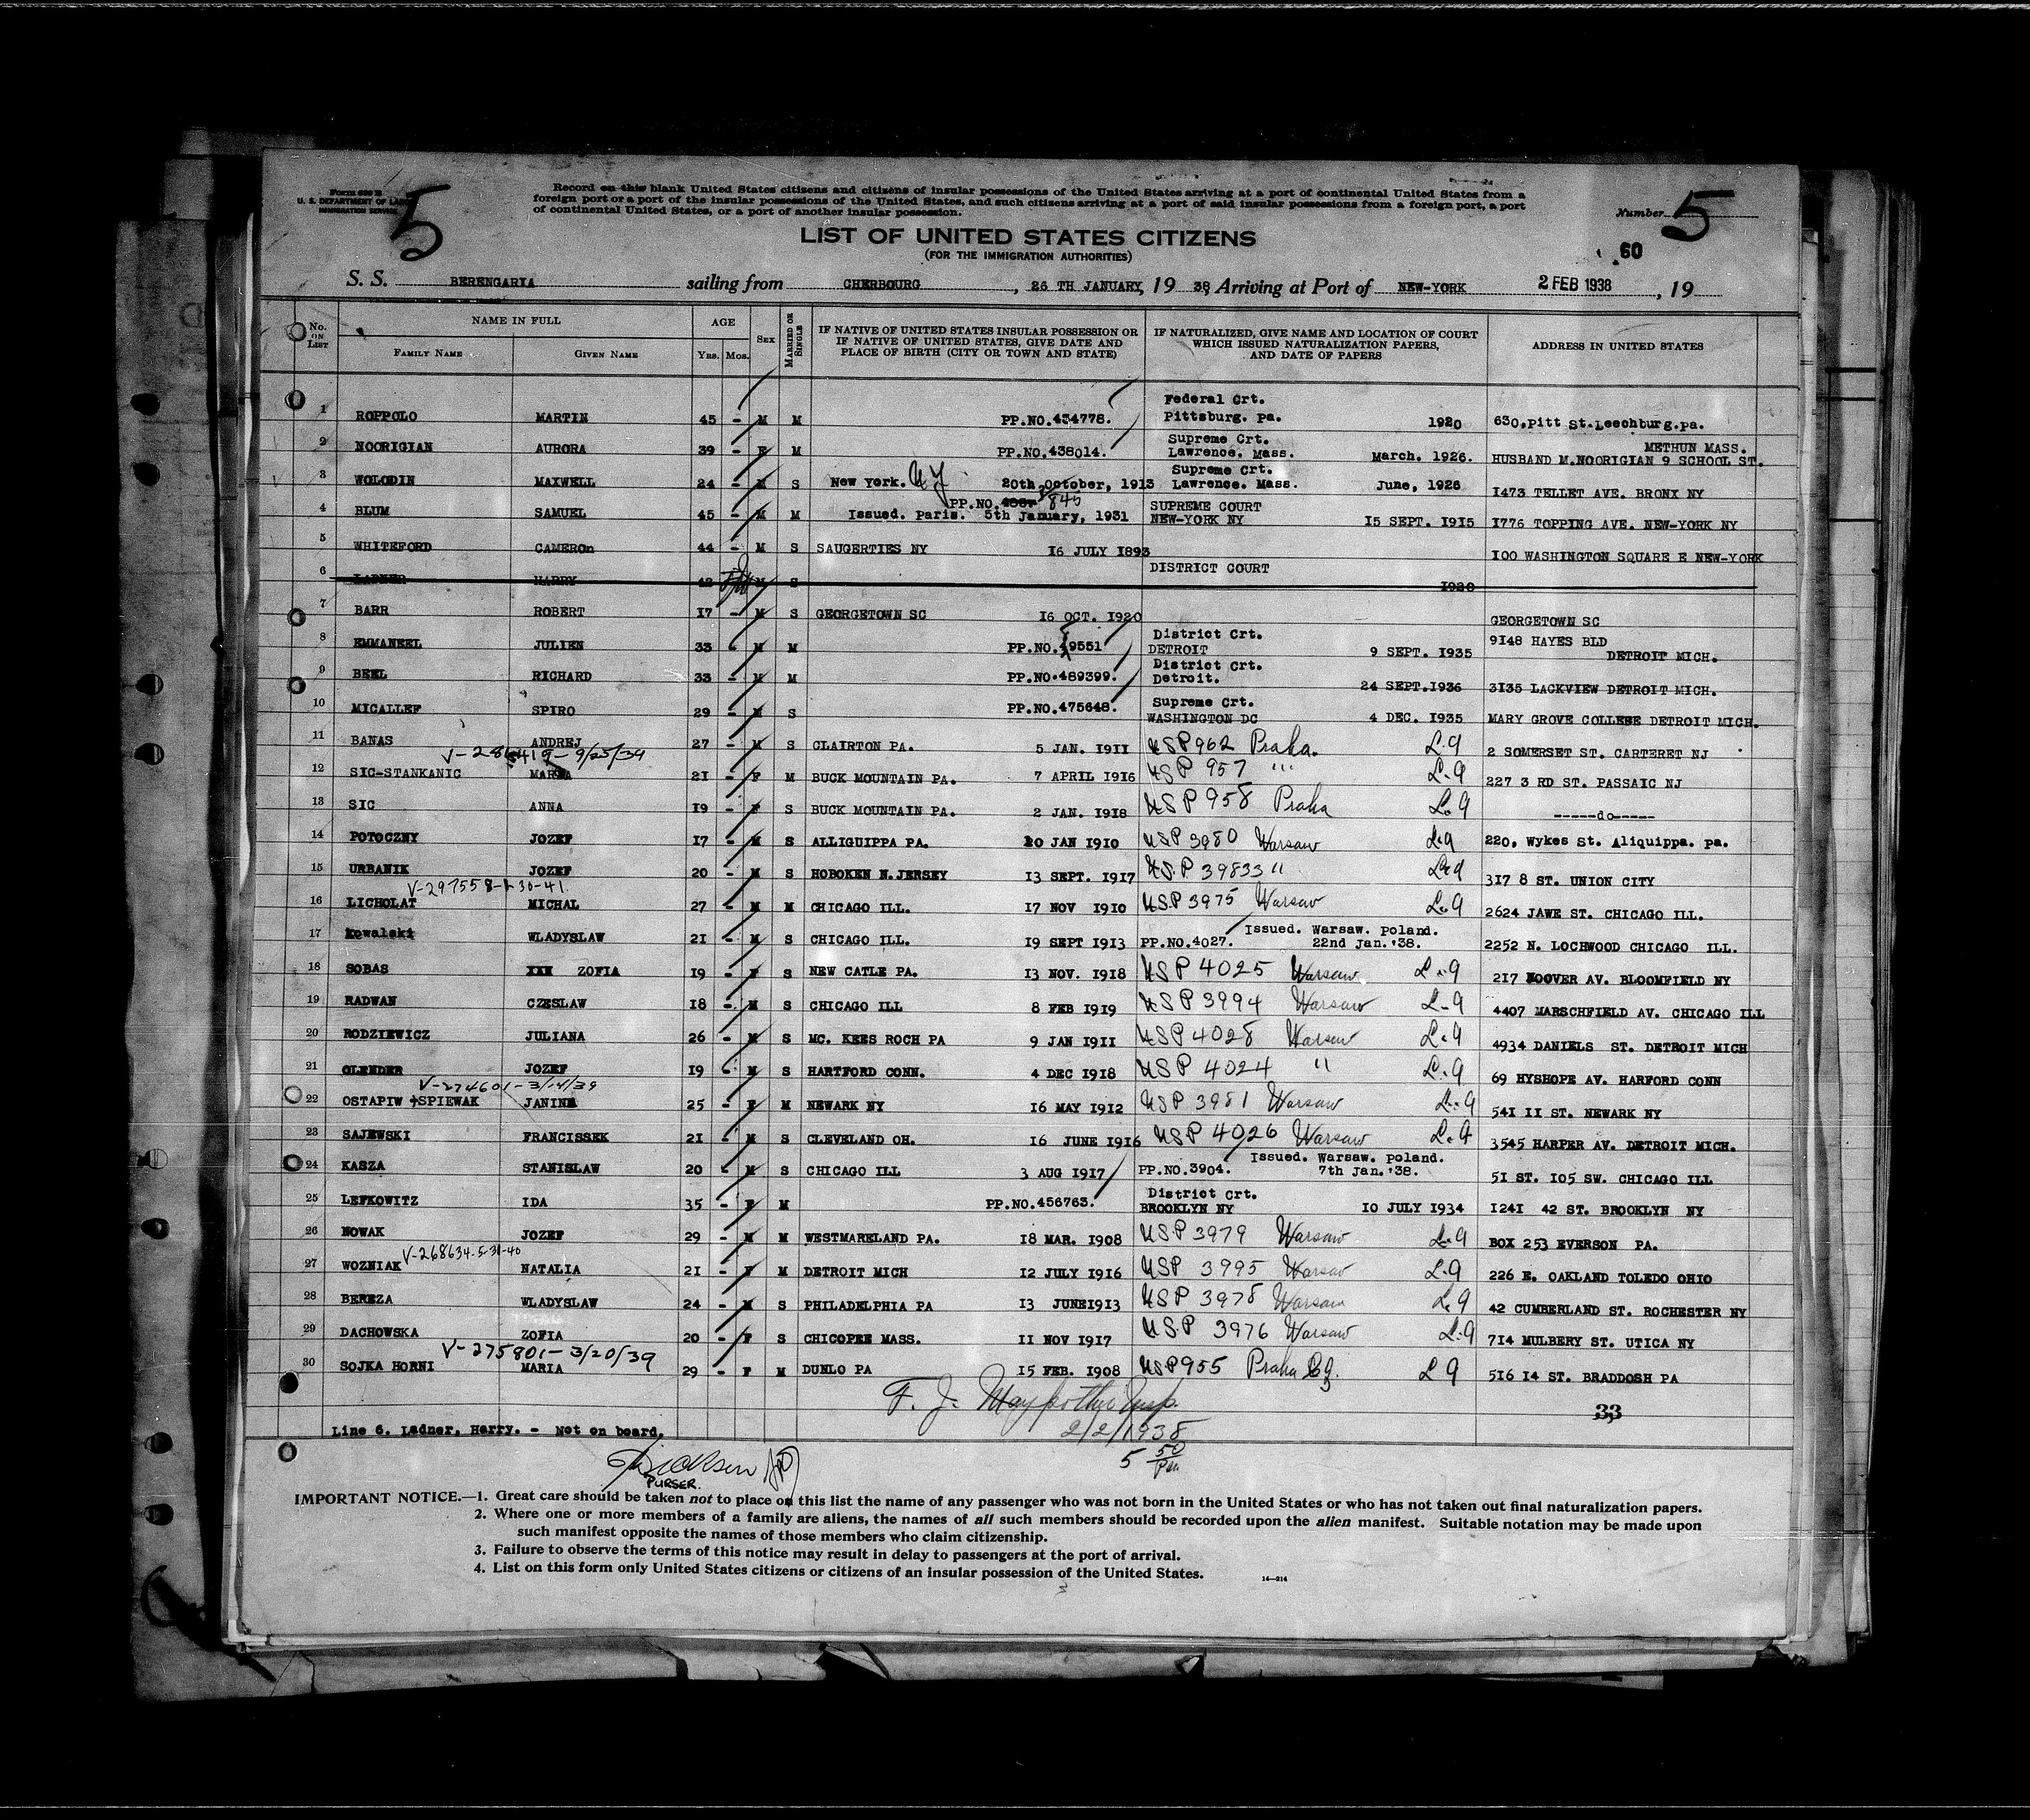 Form 630 B
U. S. DEPARTMENT OF LABOR
IMMIGRATION SERVICE
5
Record on this blank United States citizens and citizens of insular possessions of the United States arriving at a port of continental United States from a
foreign port or a port of the insular possessions of the United States, and such citizens arriving at a port of said insular possessions from a foreign port, a port
of continental United States, or a port of another insular possession.
Number 5
LIST OF UNITED STATES CITIZENS
(FOR THE IMMIGRATION AUTHORITIES)
60
S. S. BERENGARIA sailing from CHERBOURG, 26 TH JANUARY, 19 38, Arriving at Port of NEW-YORK 2 FEB 1938, 19
No. ON LIST NAME IN FULL FAMILY NAME GIVEN NAME AGE Yrs. Mos. SEX MARRIED OR SINGLE IF NATIVE OF UNITED STATES INSULAR POSSESSION OR IF NATIVE OF UNITED STATES, GIVE DATE AND PLACE OF BIRTH (CITY OR TOWN AND STATE) IF NATURALIZED, GIVE NAME AND LOCATION OF COURT WHICH ISSUED NATURALIZATION PAPERS, AND DATE OF PAPERS ADDRESS IN UNITED STATES
1 ROPPOLO MARTIN 45 - M M PP.NO.454778. Federal Crt. Pittsburg. Pa. 1920 630,Pitt St.Leechburg.pa.
2 NOORIGIAN AURORA 39 - F M PP.NO.438014. Supreme Crt. Lawrence. Mass. March. 1926. METHUN MASS. HUSBAND M.NOORIGIAN 9 SCHOOL ST.
3 WOLODIN MAXWELL 24 - M S New York. NY 20th October, 1913 Supreme Crt. Lawrence. Mass. June, 1926 1473 TELLET AVE. BRONX NY
4 BLUM SAMUEL 45 - M M PP.NO. 845 Issued. Paris. 5th January, 1931 SUPREME COURT NEW-YORK NY 15 SEPT. 1915 1776 TOPPING AVE. NEW-YORK NY
5 WHITEFORD CAMEROn 44 - M S SAUGERTIES NY 16 JULY 1893 100 WASHINGTON SQUARE E NEW-YORK
6 LADNER HARRY 42 M S DISTRICT COURT
7 BARR ROBERT 17 - M S GEORGETOWN SC 16 OCT. 1920 GEORGETOWN SC
8 EMMANEEL JULIEN 33 - M M PP.NO. 9551 District Crt. DETROIT 9 SEPT. 1935 9148 HAYES BLD DETROIT MICH.
9 BEEL RICHARD 33 - M M PP.NO.489399. District Crt. Detroit. 24 SEPT.1936 3135 LACKVIEW DETROIT MICH.
10 MICALLEF SPIRO 29 - M S PP.NO.475648. Supreme Crt. WASHINGTON DC 4 DEC. 1935 MARY GROVE COLLEGE DETROIT MICH.
11 BANAS ANDREJ 27 - M S CLAIRTON PA. 5 JAN. 1911 USP 962 Praha. L.9 2 SOMERSET ST. CARTERET NJ
V-286419-9/25/39
12 SIC-STANKANIC MARIA 21 - F M BUCK MOUNTAIN PA. 7 APRIL 1916 USP 957 " L-9 227 3 RD ST. PASSAIC NJ
13 SIC ANNA 19 - F S BUCK MOUNTAIN PA. 2 JAN. 1918 USP 958 Praha L.9 -----do-----
14 POTOCZNY JOZEF 17 - M S ALLIGUIPPA PA. 20 JAN 1910 USP 3980 Warsaw L.9 220, Wykes St. Aliquippa. pa.
15 URBANIK JOZEF 20 - M S HOBOKEN N.JERSEY 13 SEPT. 1917 U.S.P 39833 " L.9 317 8 ST. UNION CITY
V-297558-1-30-41.
16 LICHOLAT MICHAL 27 - M M CHICAGO ILL. 17 NOV 1910 U.S.P 3975 Warsaw L.9 2624 JAWE ST. CHICAGO ILL.
17 Kowalski WLADYSLAW 21 - M S CHICAGO ILL. 19 SEPT 1913 PP.NO.4027. Issued. Warsaw. Poland. 22nd Jan.'38. 2252 N. LOCHWOOD CHICAGO ILL.
18 SOBAS XXX ZOFIA 19 - F S NEW CATLE PA. 13 NOV. 1918 USP 4025 Warsaw L-9 217 HOOVER AV. BLOOMFIELD NY
19 RADWAN CZESLAW 18 - M S CHICAGO ILL 8 FEB 1919 USP 3994 Warsaw L-9 4407 MARSCHFIELD AV. CHICAGO ILL
20 RODZIEWICZ JULIANA 26 - M S MC. KEES ROCH PA 9 JAN 1911 USP 4028 Warsaw L.9 4934 DANIELS ST. DETROIT MICH
21 OLENDER JOZEF 19 - M S HARTFORD CONN. 4 DEC 1918 USP 4024 " L.9 69 HYSHOPE AV. HARFORD CONN
V-274601-3/14/39
22 OSTAPIW +SPIEWAK JANINA 25 - F M NEWARK NY 16 MAY 1912 USP 3981 Warsaw L.9 541 11 ST. NEWARK NY
23 SAJEWSKI FRANCISSEK 21 - M S CLEVELAND OH. 16 JUNE 1916 USP 4026 Warsaw L.9 3545 HARPER AV. DETROIT MICH.
24 KASZA STANISLAW 20 - M S CHICAGO ILL 3 AUG 1917 PP.NO.3904. Issued. Warsaw. Poland. 7th Jan.'38. 51 ST. 105 SW. CHICAGO ILL
25 LEFKOWITZ IDA 35 - F M PP.NO.456763. District Crt. BROOKLYN NY 10 JULY 1934 1241 42 ST. BROOKLYN NY
26 NOWAK JOZEF 29 - M M WESTMARELAND PA. 18 MAR. 1908 USP 3979 Warsaw L.9 BOX 253 EVERSON PA.
V-268634-5-31-40
27 WOZNIAK NATALIA 21 - F M DETROIT MICH 12 JULY 1916 USP 3995 Warsaw L.9 226 E. OAKLAND TOLEDO OHIO
28 BEREZA WLADYSLAW 24 - M S PHILADELPHIA PA 13 JUNE1913 USP 3978 Warsaw L.9 42 CUMBERLAND ST. ROCHESTER NY
29 DACHOWSKA ZOFIA 20 - F S CHICOPEE MASS. 11 NOV 1917 U.S.P 3976 Warsaw L.9 714 MULBERY ST. UTICA NY
V-275801-3/20/39
30 SOJKA HORNI MARIA 29 - F M DUNLO PA 15 FEB. 1908 USP 955 Praha L 9 516 14 ST. BRADDOSH PA
F. J. Insp.
33
2/2/1938
Line 6. Ladner, Harry. - Not on board.
5 50
Dickson
PURSER.
IMPORTANT NOTICE.—1. Great care should be taken not to place on this list the name of any passenger who was not born in the United States or who has not taken out final naturalization papers.
2. Where one or more members of a family are aliens, the names of all such members should be recorded upon the alien manifest. Suitable notation may be made upon
such manifest opposite the names of those members who claim citizenship.
3. Failure to observe the terms of this notice may result in delay to passengers at the port of arrival.
4. List on this form only United States citizens or citizens of an insular possession of the United States.
14—214